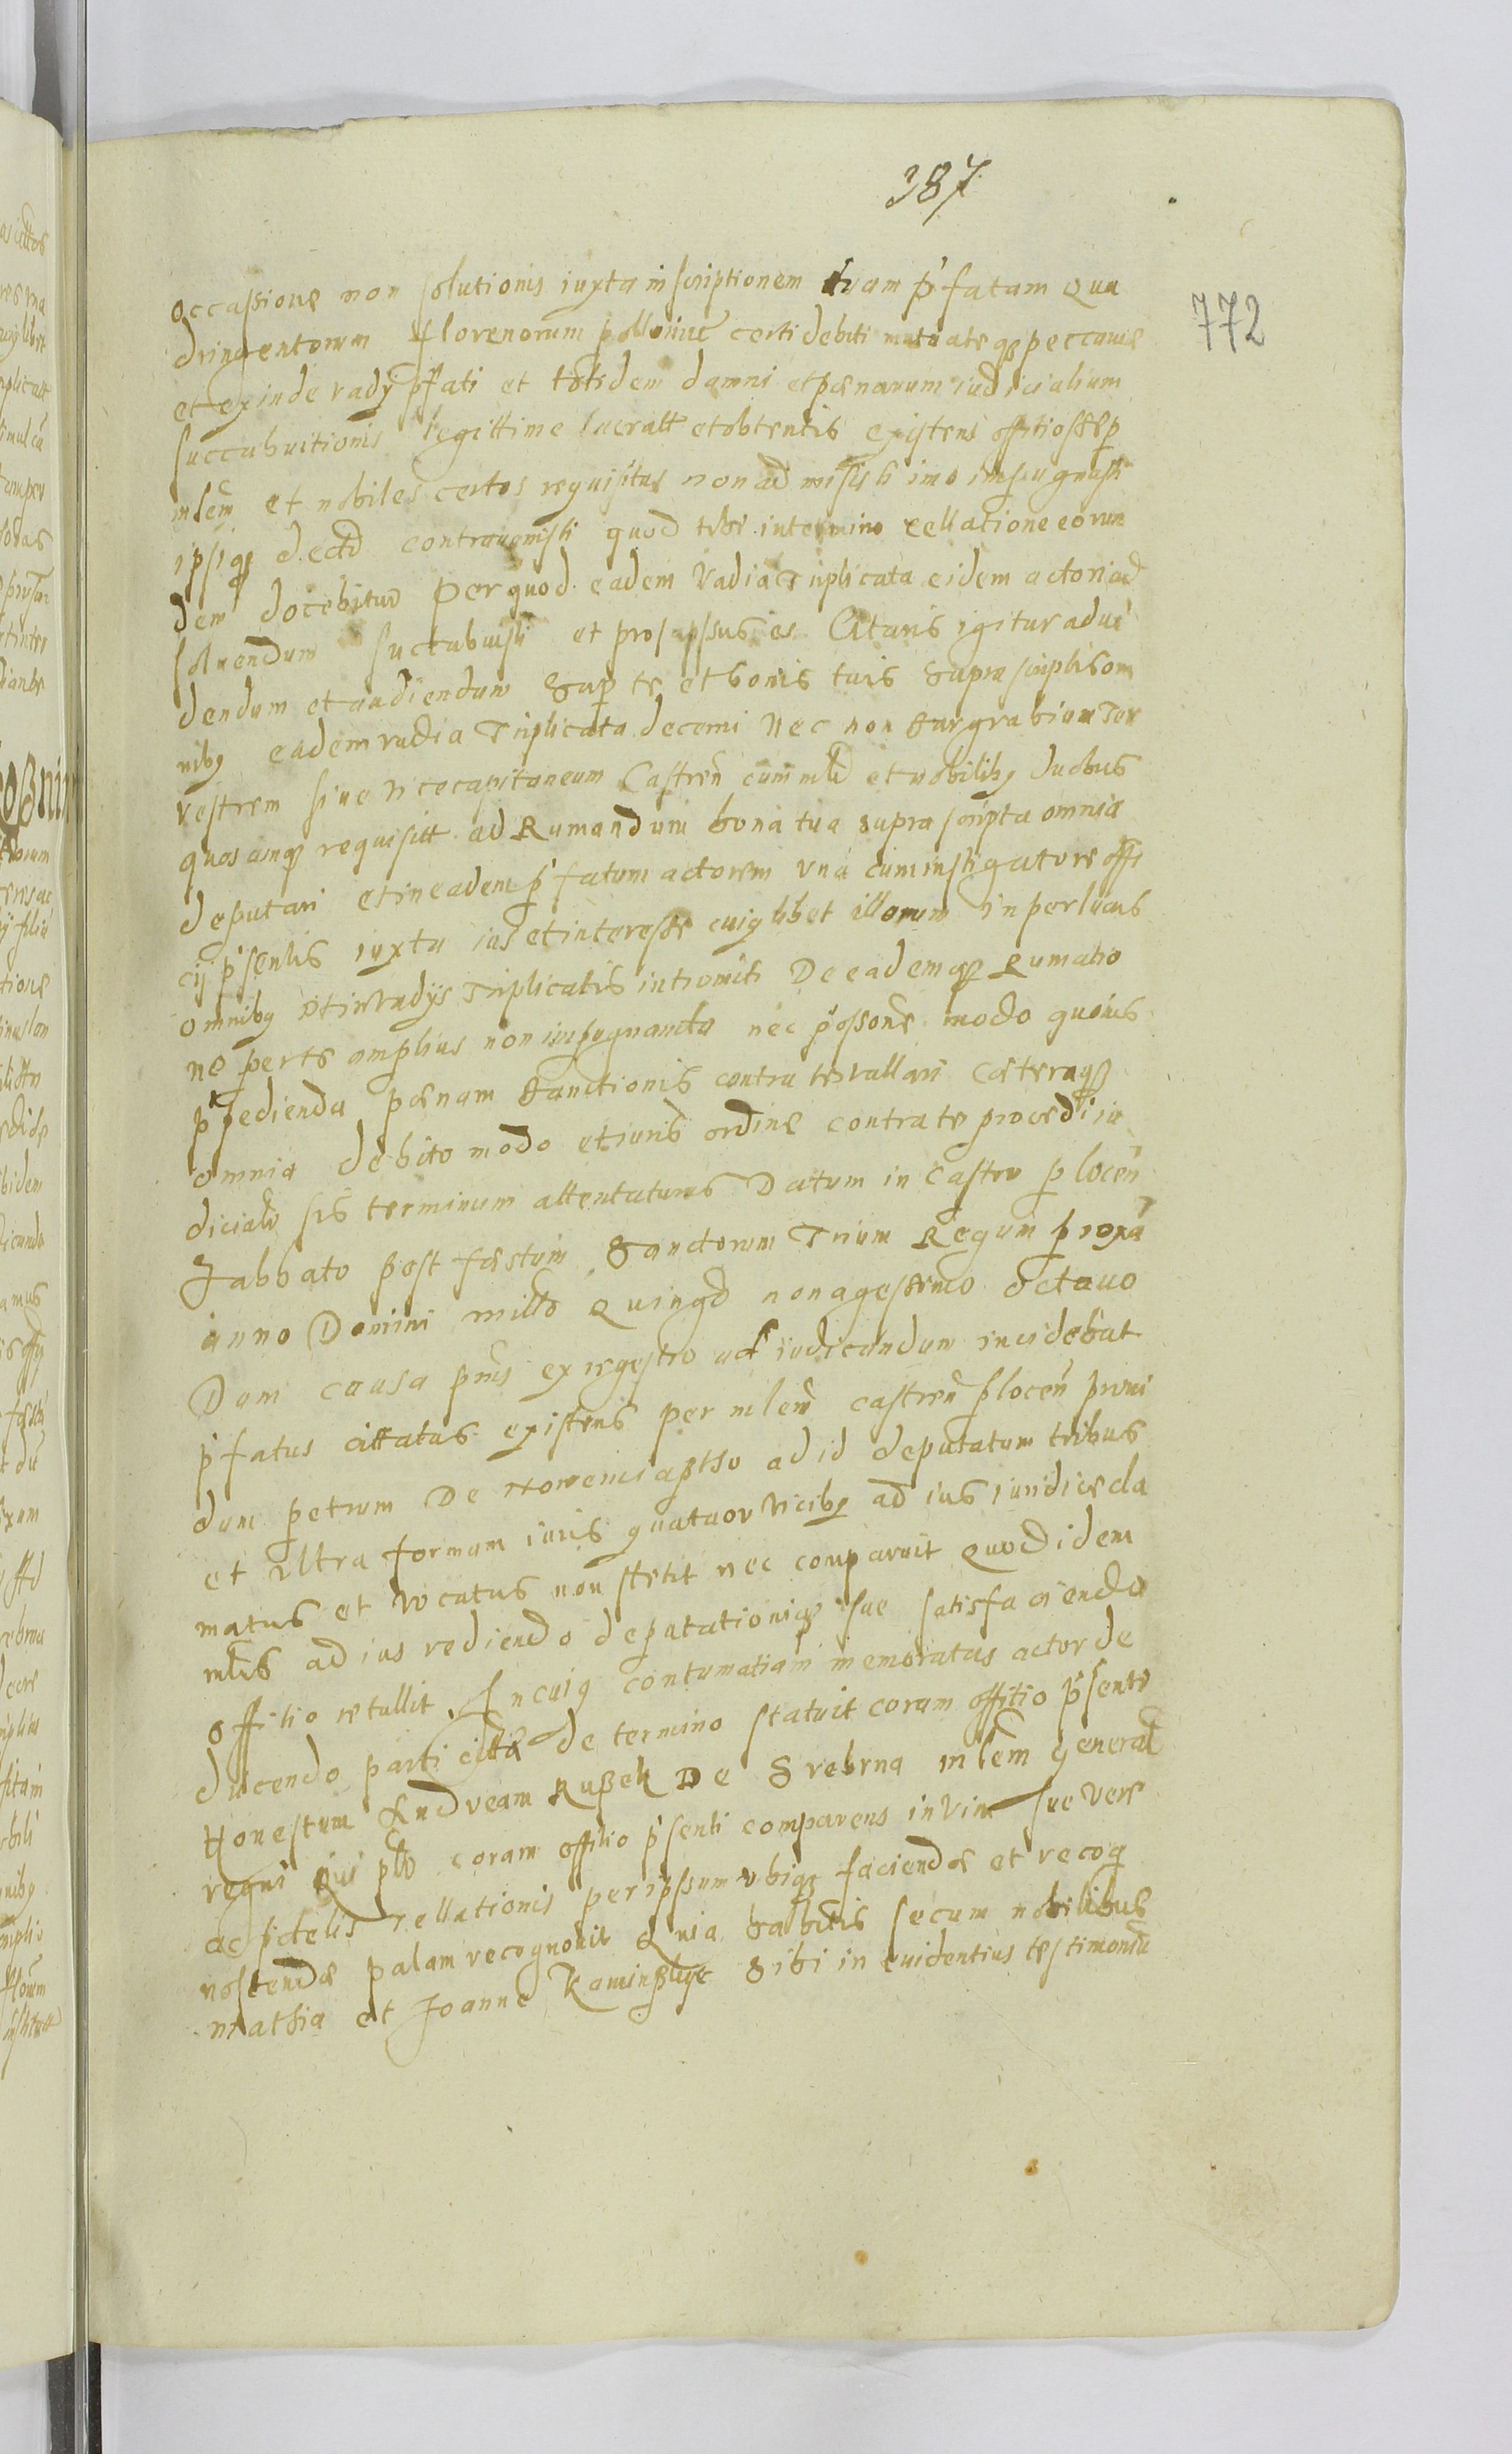 387
772
occassione non solutionis iuxta inscriptionem tuam p'fatam qua
dringentorum florenorum pollonice certi debiti mutuateqȝ peccunie
et exinde vady p'fati et totidem damni et penarum iudicialium
succubuitionis legittime lucratt et obtentis existens offitiosse p
mlem et nobiles certos requisitus non admisisti imo impugnasti
ipsiqȝ dectd contravenisti quod tibi in termino rellatione eorun
dem docebitur per quod eadem vadia triplicata eidem actori ad
soluendum succubuisti et prolapssus es Citaris igitur ad vi
dendum et audiendum Super te et bonis tuis supra scriptis om
nibȝ eadem vadia Triplicata decerni Nec non Burgrabium Ter
restrem siue vicecapitaneum Castren cum mld et nobilibȝ duobus
quos actqȝ requisitt ad Rumandum bona tua supra scripta omnia
deputari et in eadem p'fatum actorem vna cum instigatore offi
cij p'sentis iuxta ius et interesse cuiqȝ libet illorum in perlucris
omnibȝ et in vadijs triplicatis intromitti De eademqȝ Rumatio
ne per te amplius non impugnanda nec p'ossone modo quouis
p'pedienda penam Banctionis contra te vallari Cæteraqȝ
omnia debito modo et iuris ordine contra te procedi iu
dicialr sis terminum attentaturus Datum in Castro plocen
Sabbato post festum Sanctorum Trium Regum proxa
anno Domini millo Quingd nonagessimo octauo
Dum causa pns ex regestro ad iudicandum incidebat
p'fatus cittatus existens per mlem castren plocen provi
dum petrum De Noweniasstho ad id deputatum tribus
et vltra formam iuris quatuor vicibȝ ad ius iuridice cla
matus et vocatus non stetit nec comparuit Quod idem
mlis ad ius rediendo deputationiqȝ sue satisfaciendo
offitio retullit In cuiȝ contumatiam memoratus actor de
ducendo parti citta de termino statuit coram offitio p'sente
Honestum Andream Russek De Srebrna mlem general
regni Qui plr coram offitio p'senti comparens in vim sue vere
ac fidelis rellationis per ipssum vbiqȝ faciende et recog
noscende palam recognouit Quia habitis secum nobilibus
Mathia et Joanne Kaminsskye sibi in euidentius testimoniu